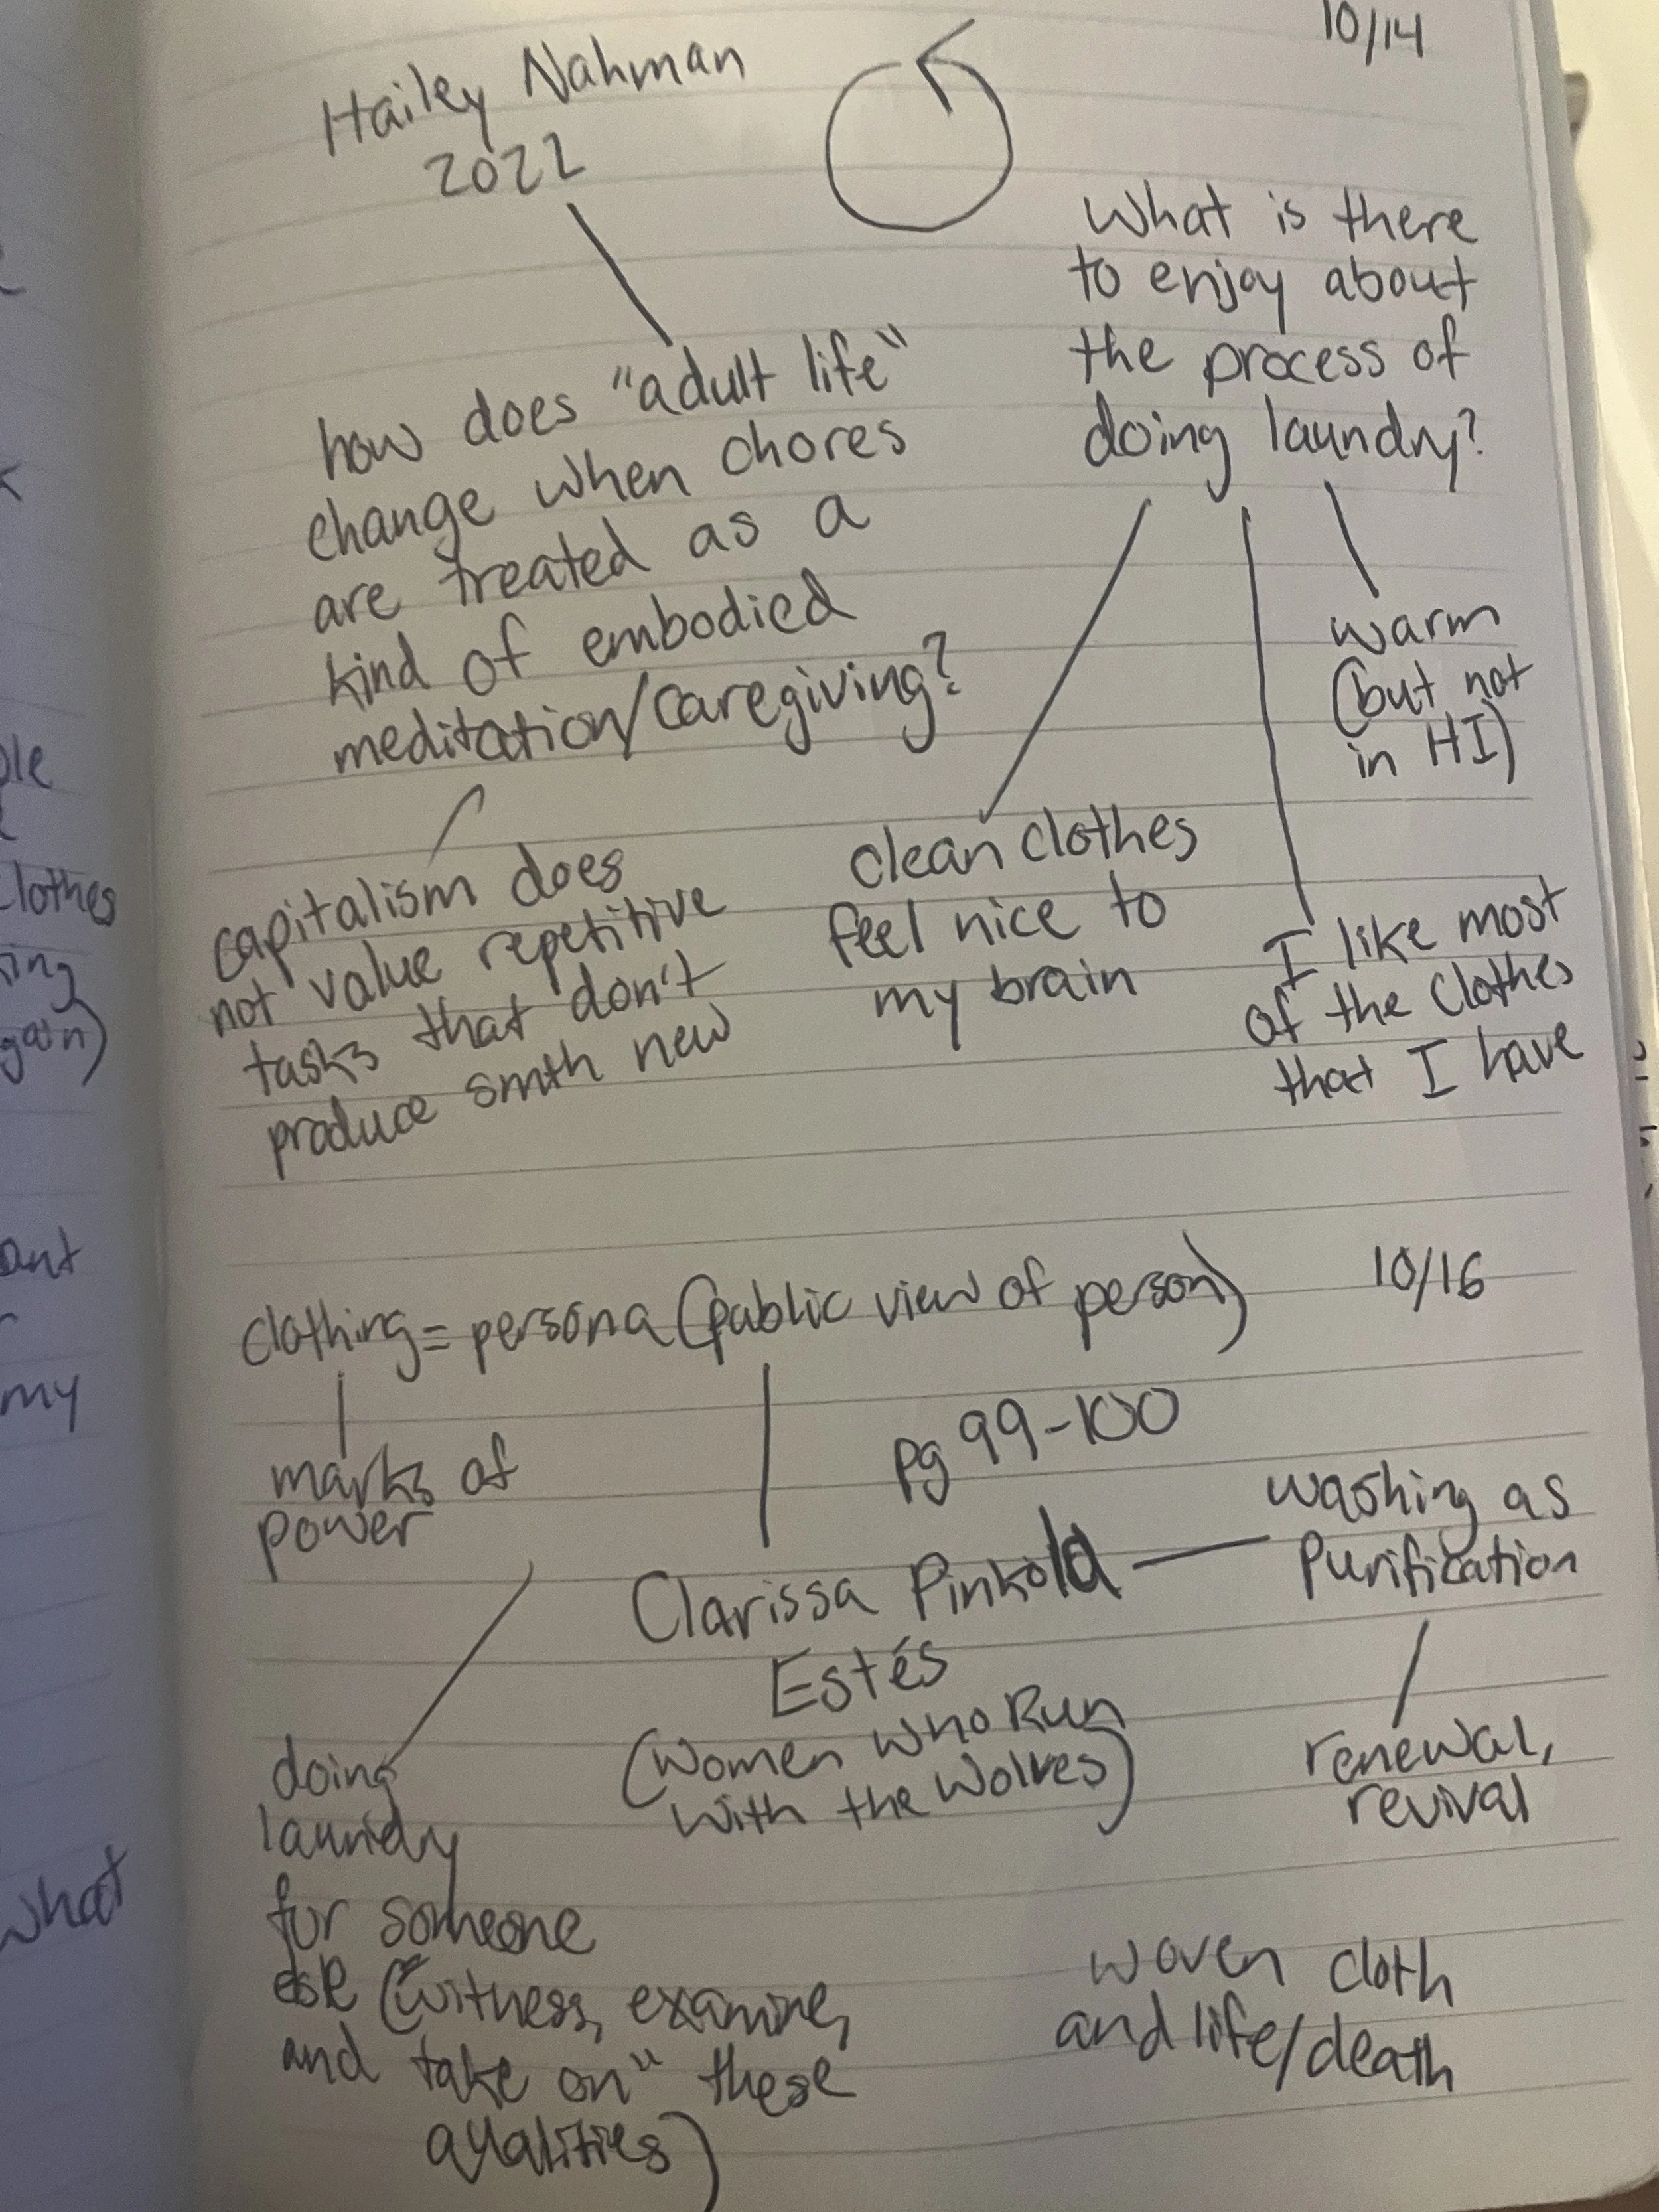 10/14
Hailey Nahman
2022
how does "adult life"
change when chores
are treated as a
kind of embodied
meditation/caregiving?
capitalism does
not value repetitive
tasks that don't
produce smth new
What is there
to enjoy about
the process of
doing laundry?
clean clothes
feel nice to
my brain
I like most
of the clothes
that I have
warm
(but not
in HI)
10/16
clothing = persona (public view of person)
marks of
power
doing
laundry
for someone
else ("witness, examine,
and take on" these
qualities)
pg 99-100
Clarissa Pinkola
Estés
(Women Who Run
with the Wolves)
washing as
Purification
renewal,
revival
woven cloth
and life/death
clothes
my
what